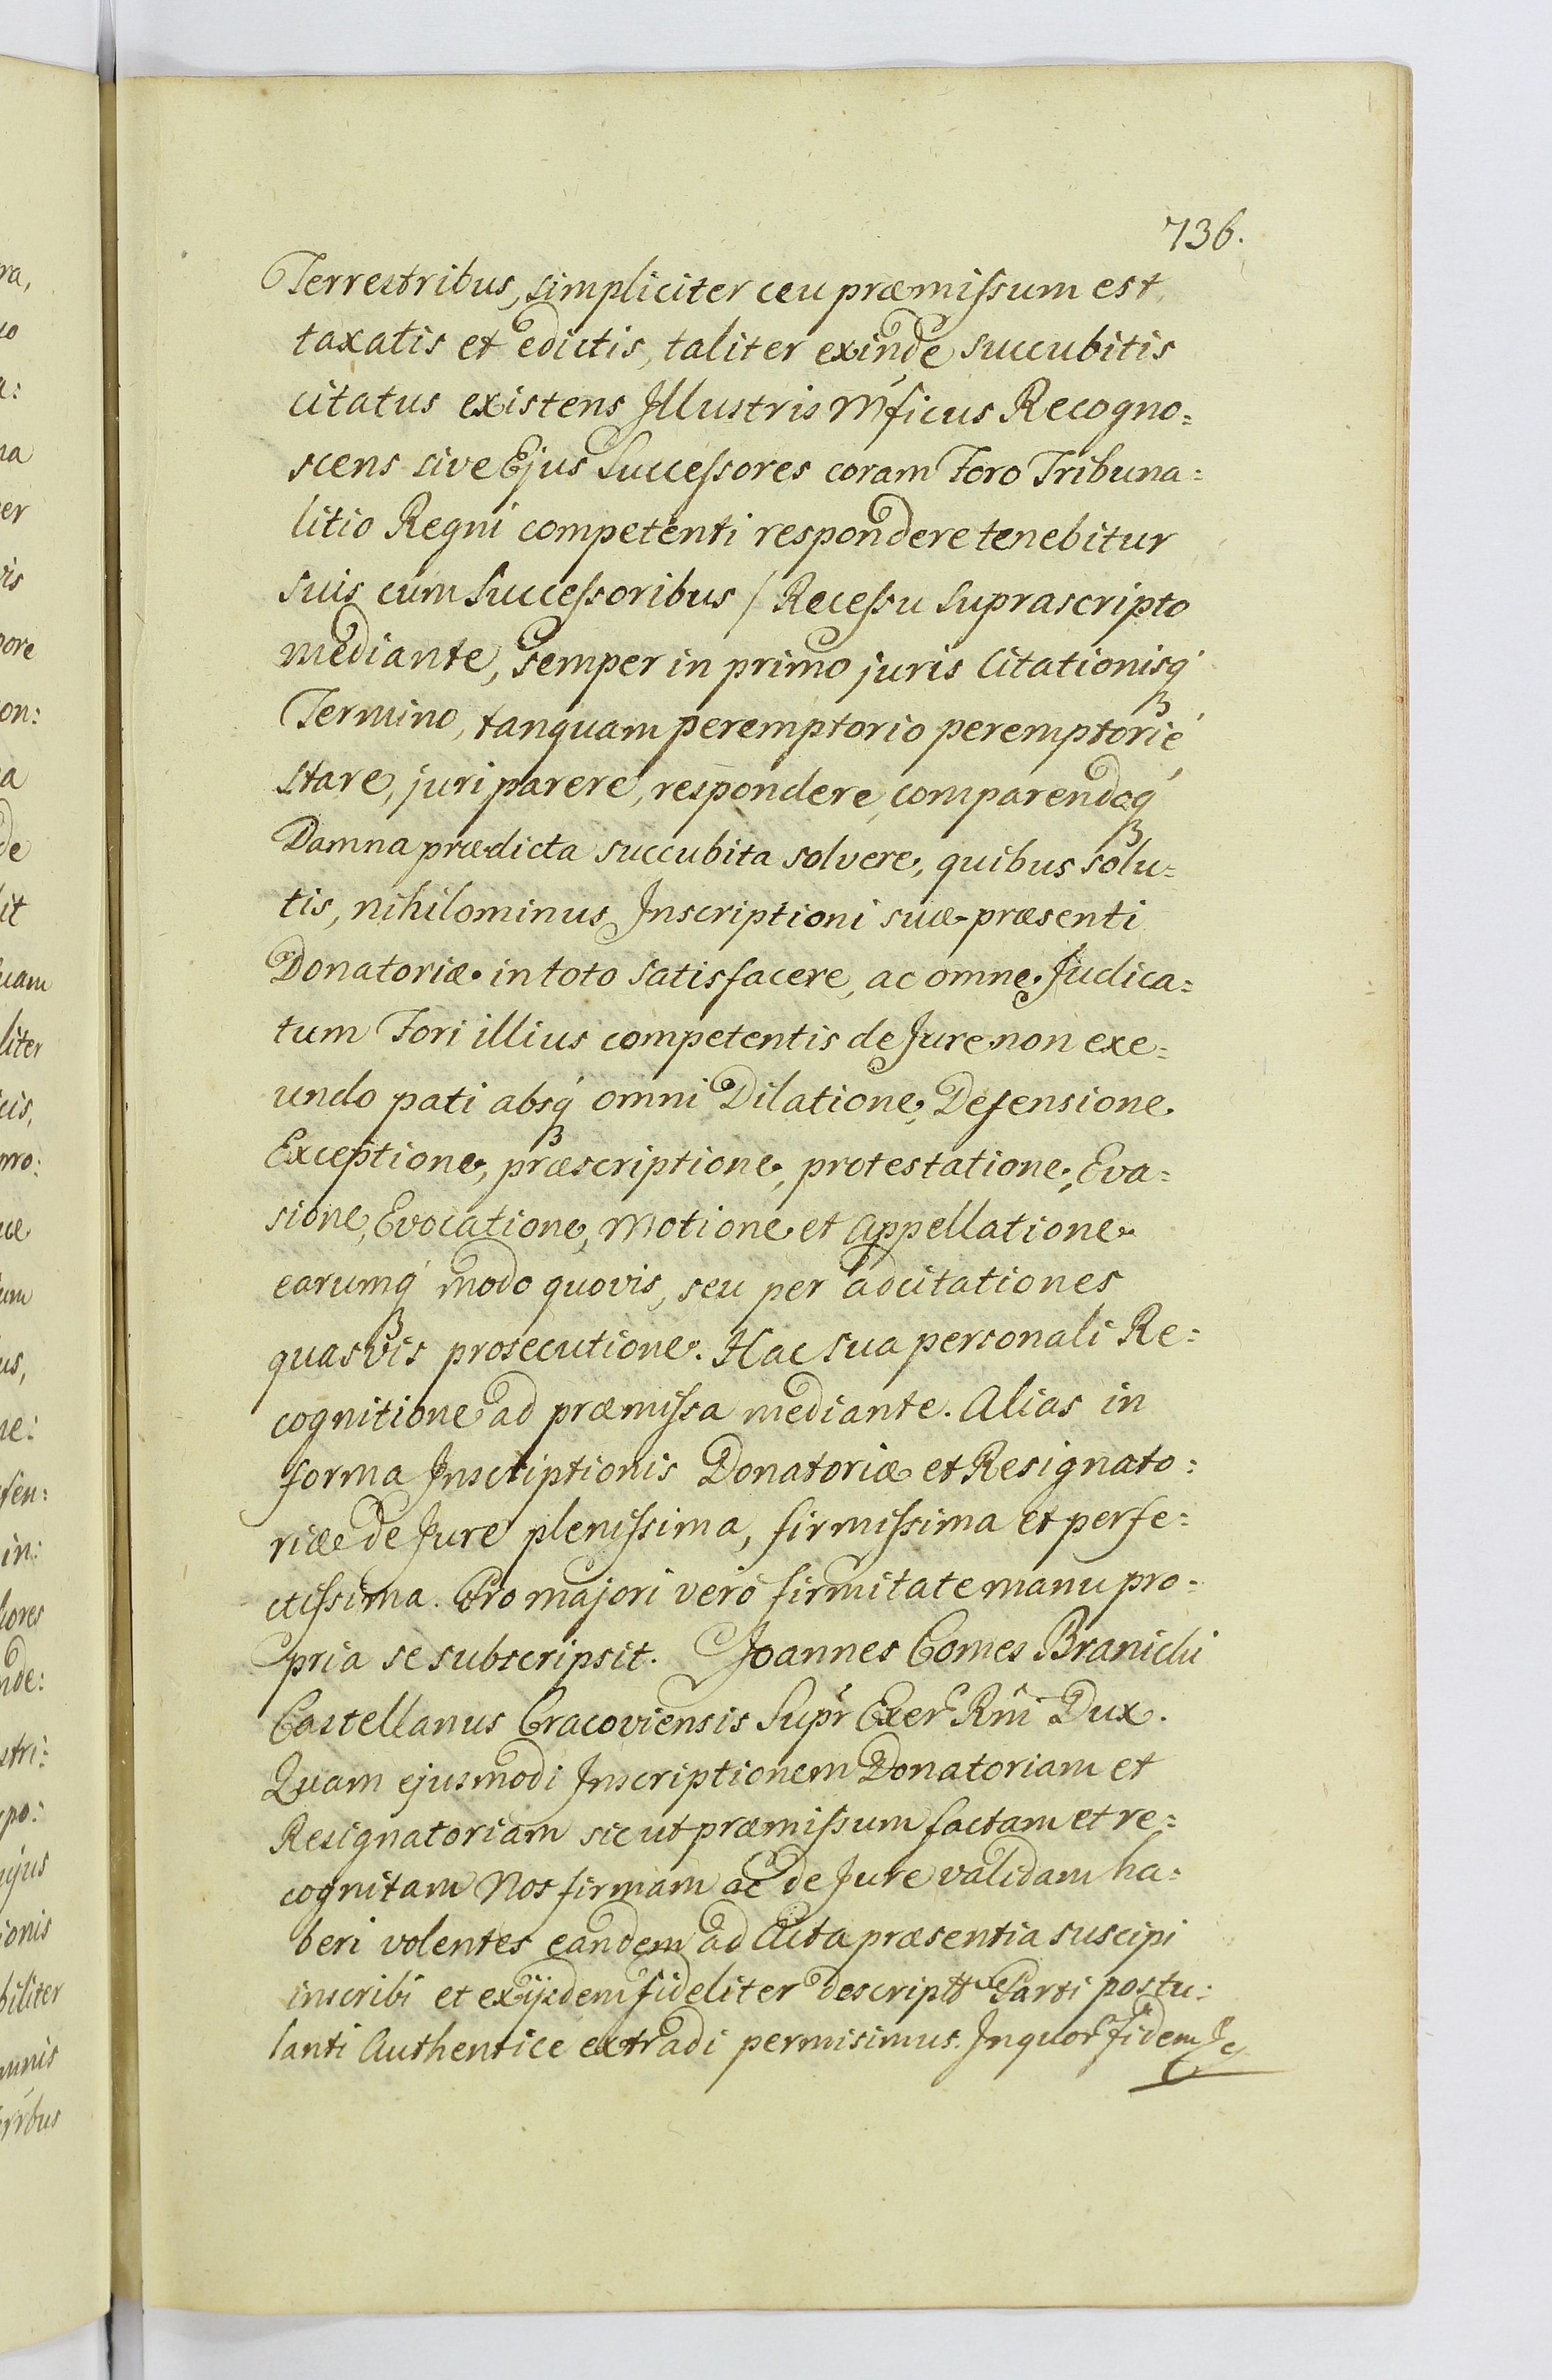 736.
Terrestribus, simpliciter ceu præmissum est
taxatis et edictis, taliter exinde succubitis
citatus existens Jllustris Mficus Recogno=
scens sive Ejus Successores coram Foro Tribuna=
litio Regni competenti respondere tenebitur
suis cum Successoribus / Recessu suprascripto
mediante, semper in primo juris Citationisq́
Termino, tanquam peremptorio peremptorié
stare, juri parere, respondere, comparendoq́
Damna prædicta succubita solvere, quibus solu=
tis, nihilominus Jnscriptioni suæ præsenti
Donatoriæ in toto satisfacere, ac omne Judica=
tum Fori illius competentis de Jure non exe=
undo pati absq́ omni Dilatione, Defensione
Exceptione, præscriptione, protestatione, Eva=
sione, Evocatione, Motione et Appellatione
earumq́ modo quovis, seu per adcitationes
quasvis prosecutione. Hac sua personali Re=
cognitione ad præmissa mediante. Alias in
forma Jnscriptionis Donatoriæ et Resignato=
riæ de Jure plenissima, firmissima et perfe=
ctissima. Pro majori veró firmitate manu pro=
pria se subscripsit. Joannes Comes Branicki
Castellanus Cracoviensis Supr Exer Rni Dux.
Quam ejusmodi Jnscriptionem Donatoriam et
Resignatoriam sic ut præmissum factam et re=
cognitam Nos firmam ac de Jure validam ha=
beri volentes eandem ad Acta præsentia suscipi
inscribi et exijsdem fideliter descriptt Parti postu=
lanti Authentice extradi permisimus. Jnquor fidem